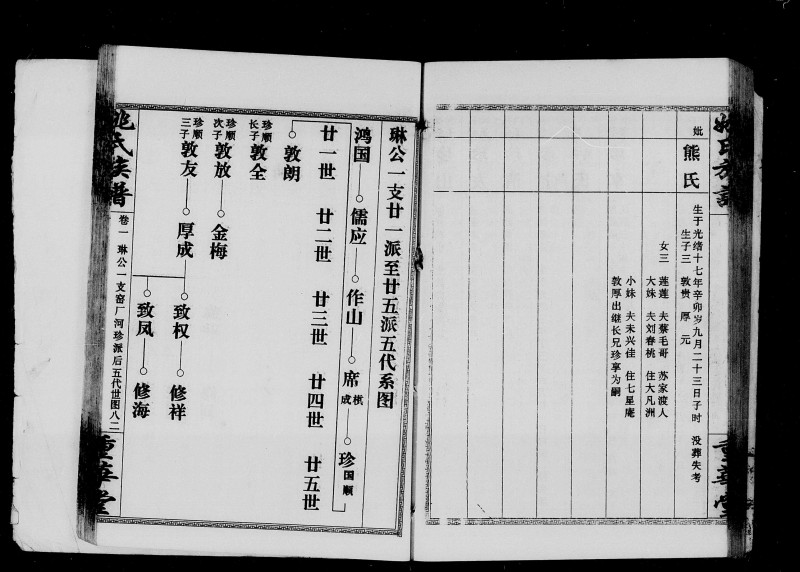 姚氏族谱
重华堂
妣
熊氏
生于光绪十七年辛卯岁九月二十三日子时 没葬失考
生子三 敦贵 厚 元
女三 莲莲 夫蔡毛哥 苏家渡人
大妹 夫刘春桃 住大凡洲
小妹 夫未兴佳 住七星庵
敦厚出继长兄珍享为嗣
琳公一支廿一派至廿五派五代系图
鸿国 儒应 作山 席 棋 成 珍 国 顺
廿一世 廿二世 廿三世 廿四世 廿五世
敦朗
珍顺长子 敦全
珍顺次子 敦放 金梅
珍顺三子 敦友 厚成 致权 修祥
致凤 修海
姚氏族谱
卷一 琳公一支窑厂河珍派后五代世图八二
重华堂